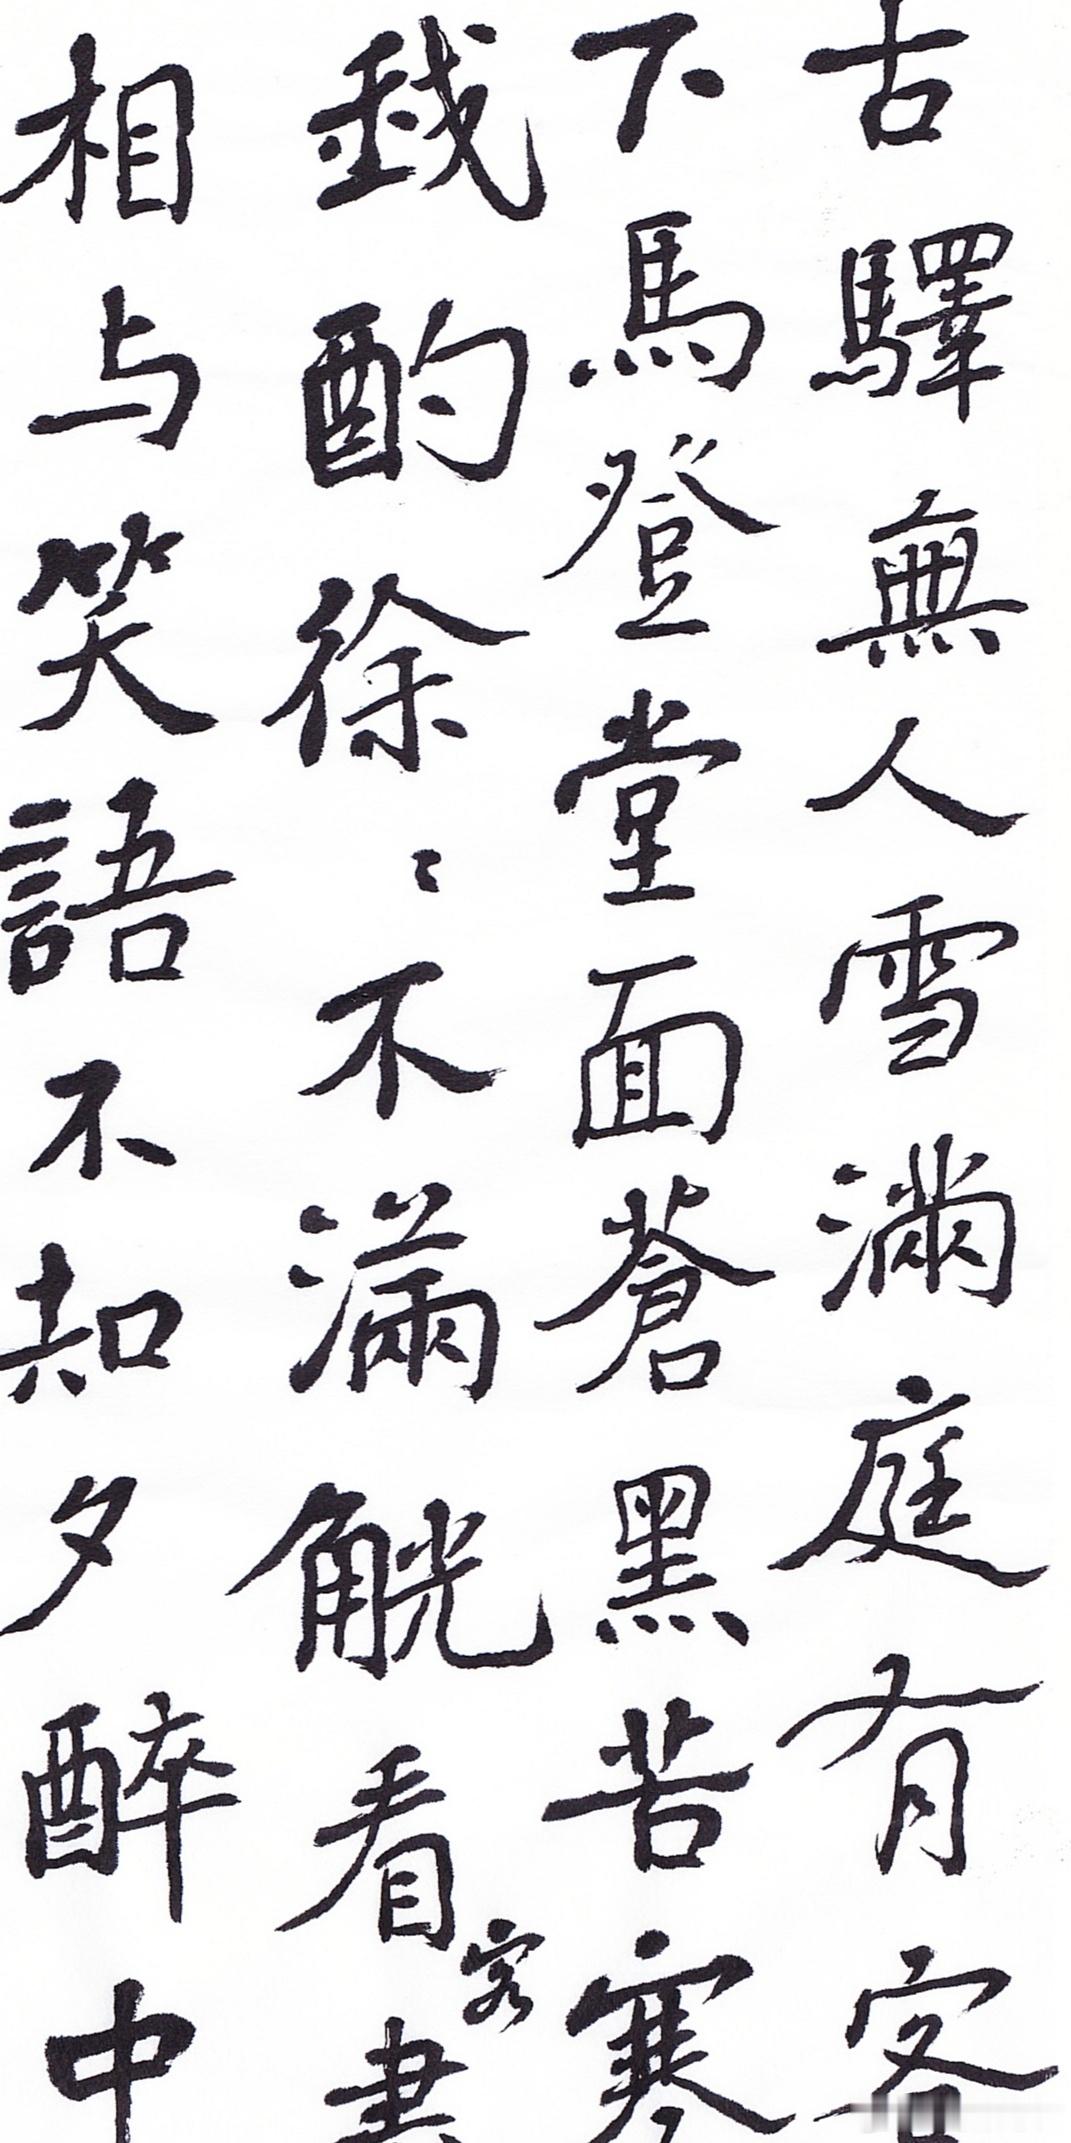 古驛無人雪滿庭有客
下馬登堂面蒼黑苦寒
我酌徐〻不滿觥看客
相与笑語不知夕醉中